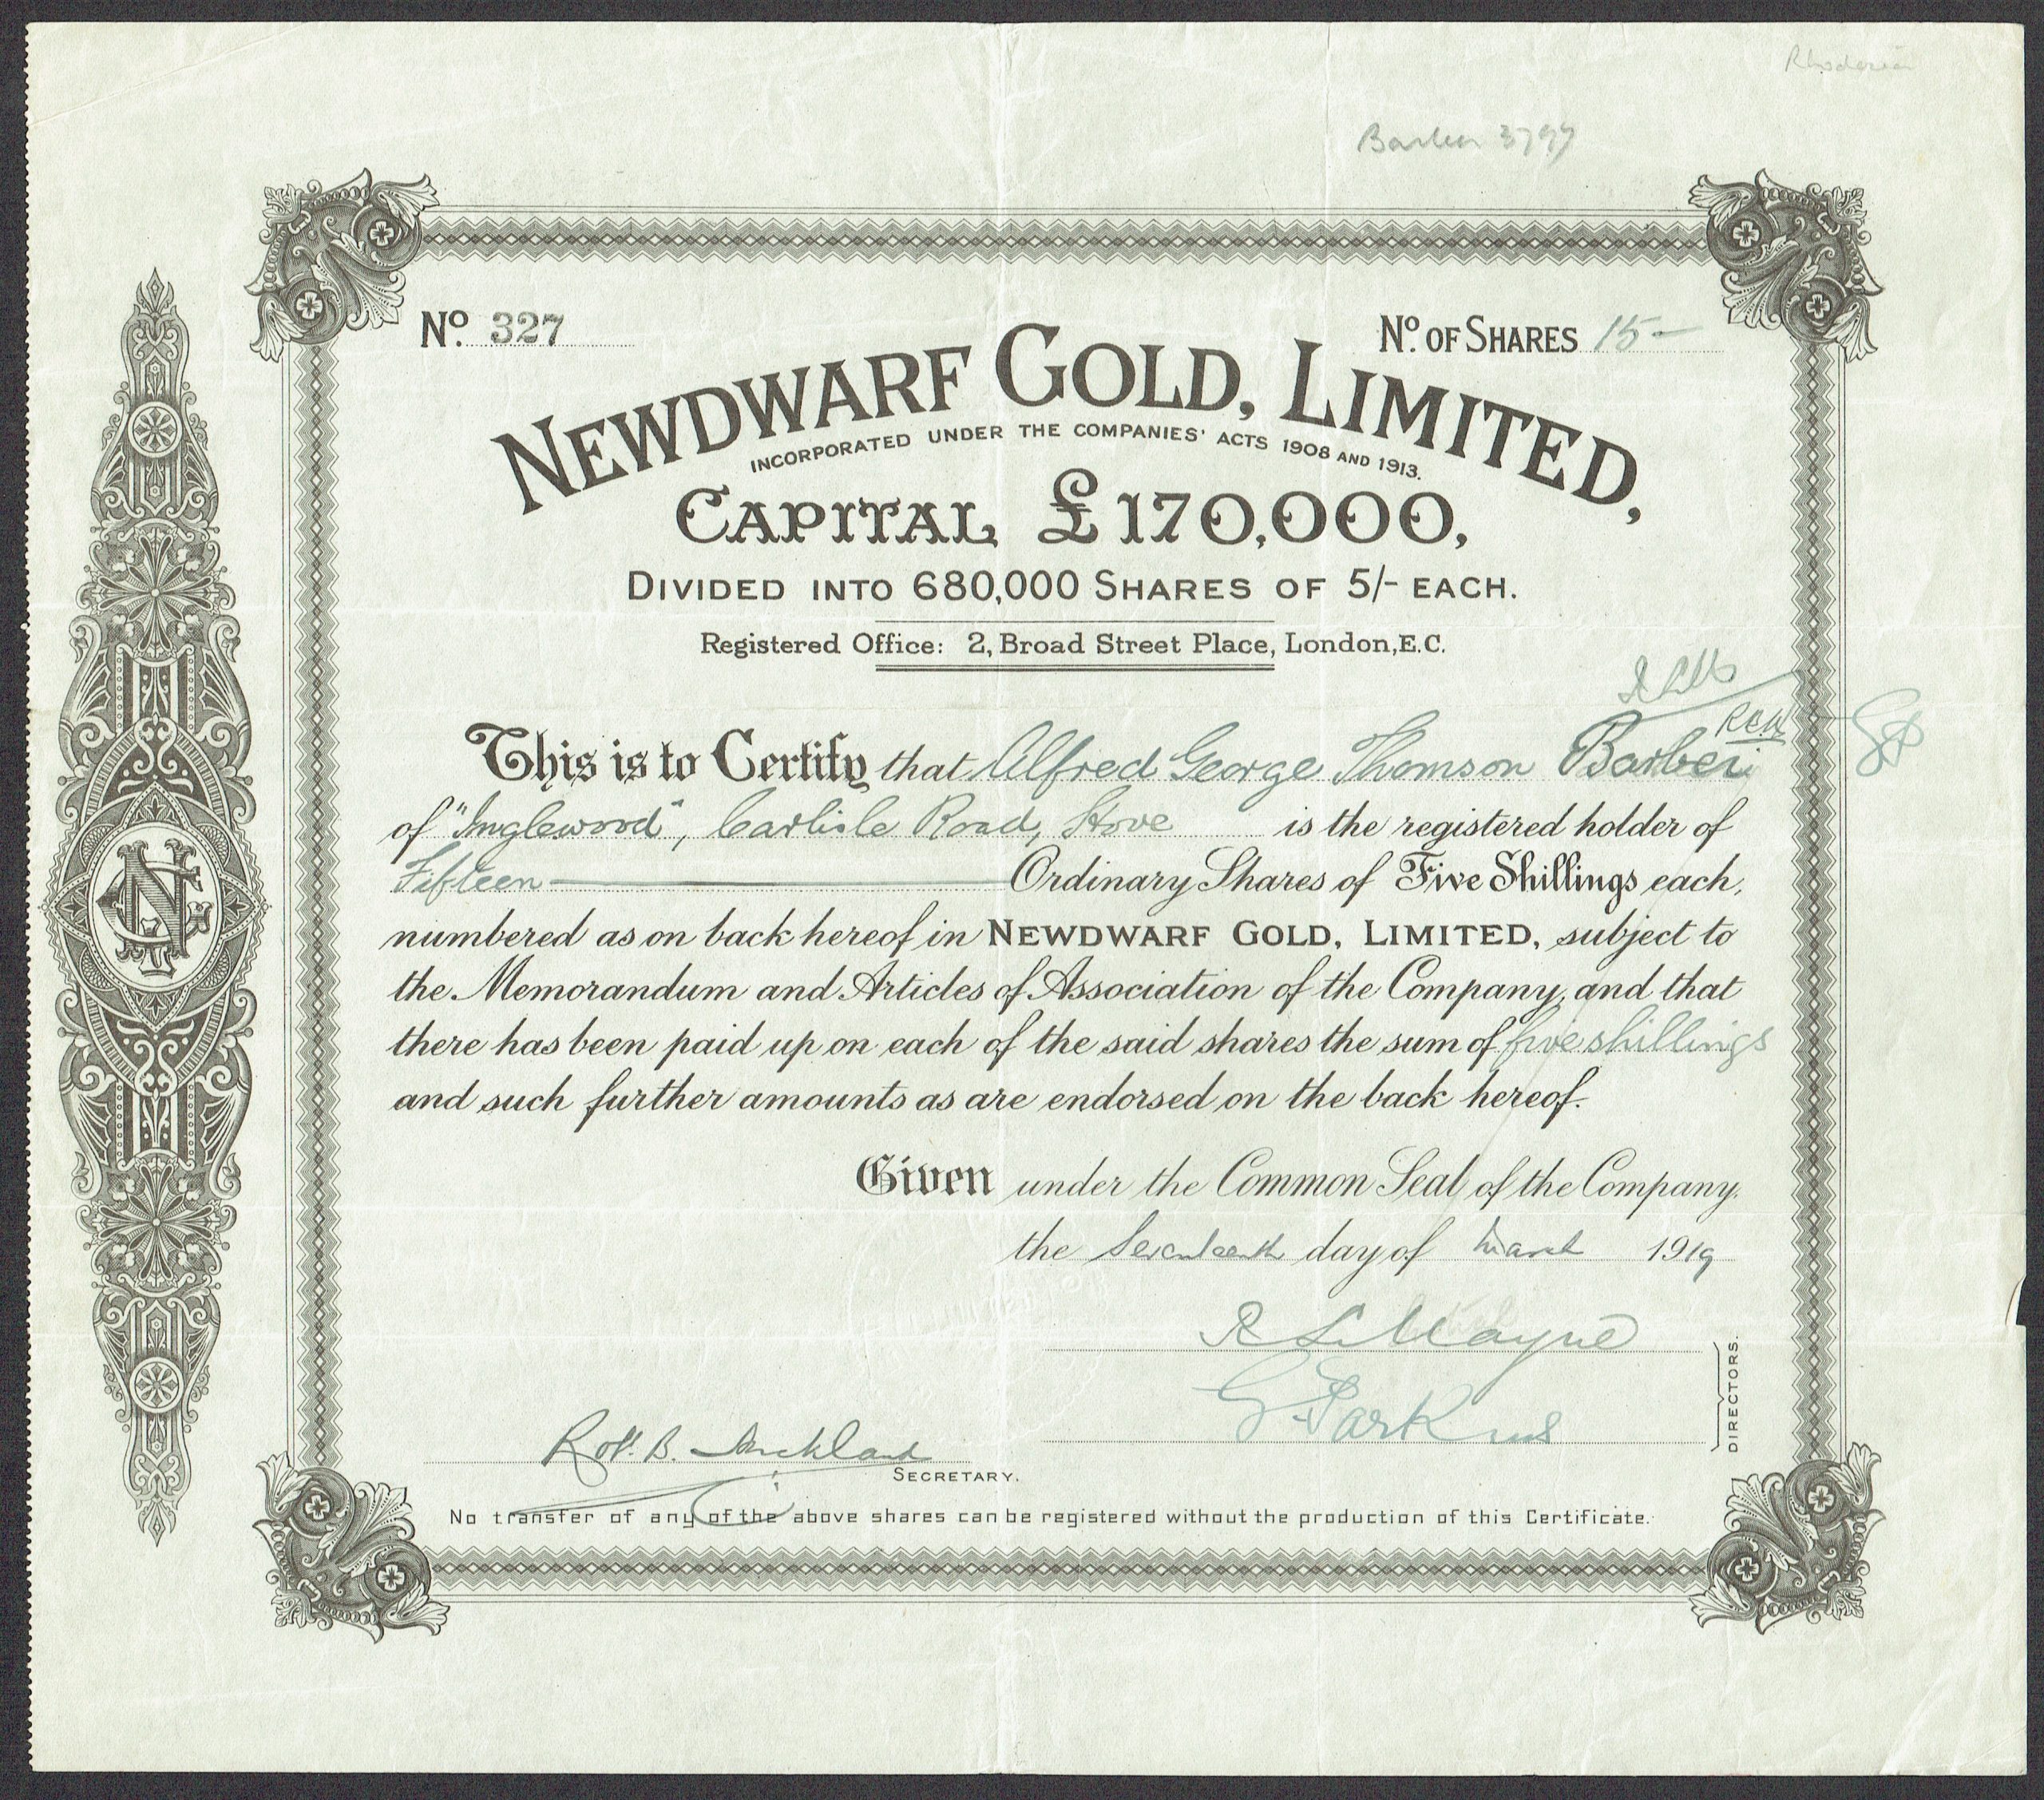 Rhodesia
Barber 3797
No. 327
No. OF SHARES 15-
NEWDWARF GOLD, LIMITED,
INCORPORATED UNDER THE COMPANIES' ACTS 1908 AND 1913.
CAPITAL £170,000,
DIVIDED INTO 680,000 SHARES OF 5/- EACH.
Registered Office: 2, Broad Street Place, London, E.C.
This is to Certify that Alfred George Thomson Barber
of "Inglewood", Carlisle Road, Hove is the registered holder of
Fifteen Ordinary Shares of Five Shillings each,
numbered as on back hereof in NEWDWARF GOLD, LIMITED, subject to
the Memorandum and Articles of Association of the Company, and that
there has been paid up on each of the said shares the sum of five shillings
and such further amounts as are endorsed on the back hereof.
Given under the Common Seal of the Company.
the Seventeenth day of March 1919
R L Mayne
G. Parkins
DIRECTORS.
Robt. B.
SECRETARY.
No transfer of any of the above shares can be registered without the production of this Certificate.